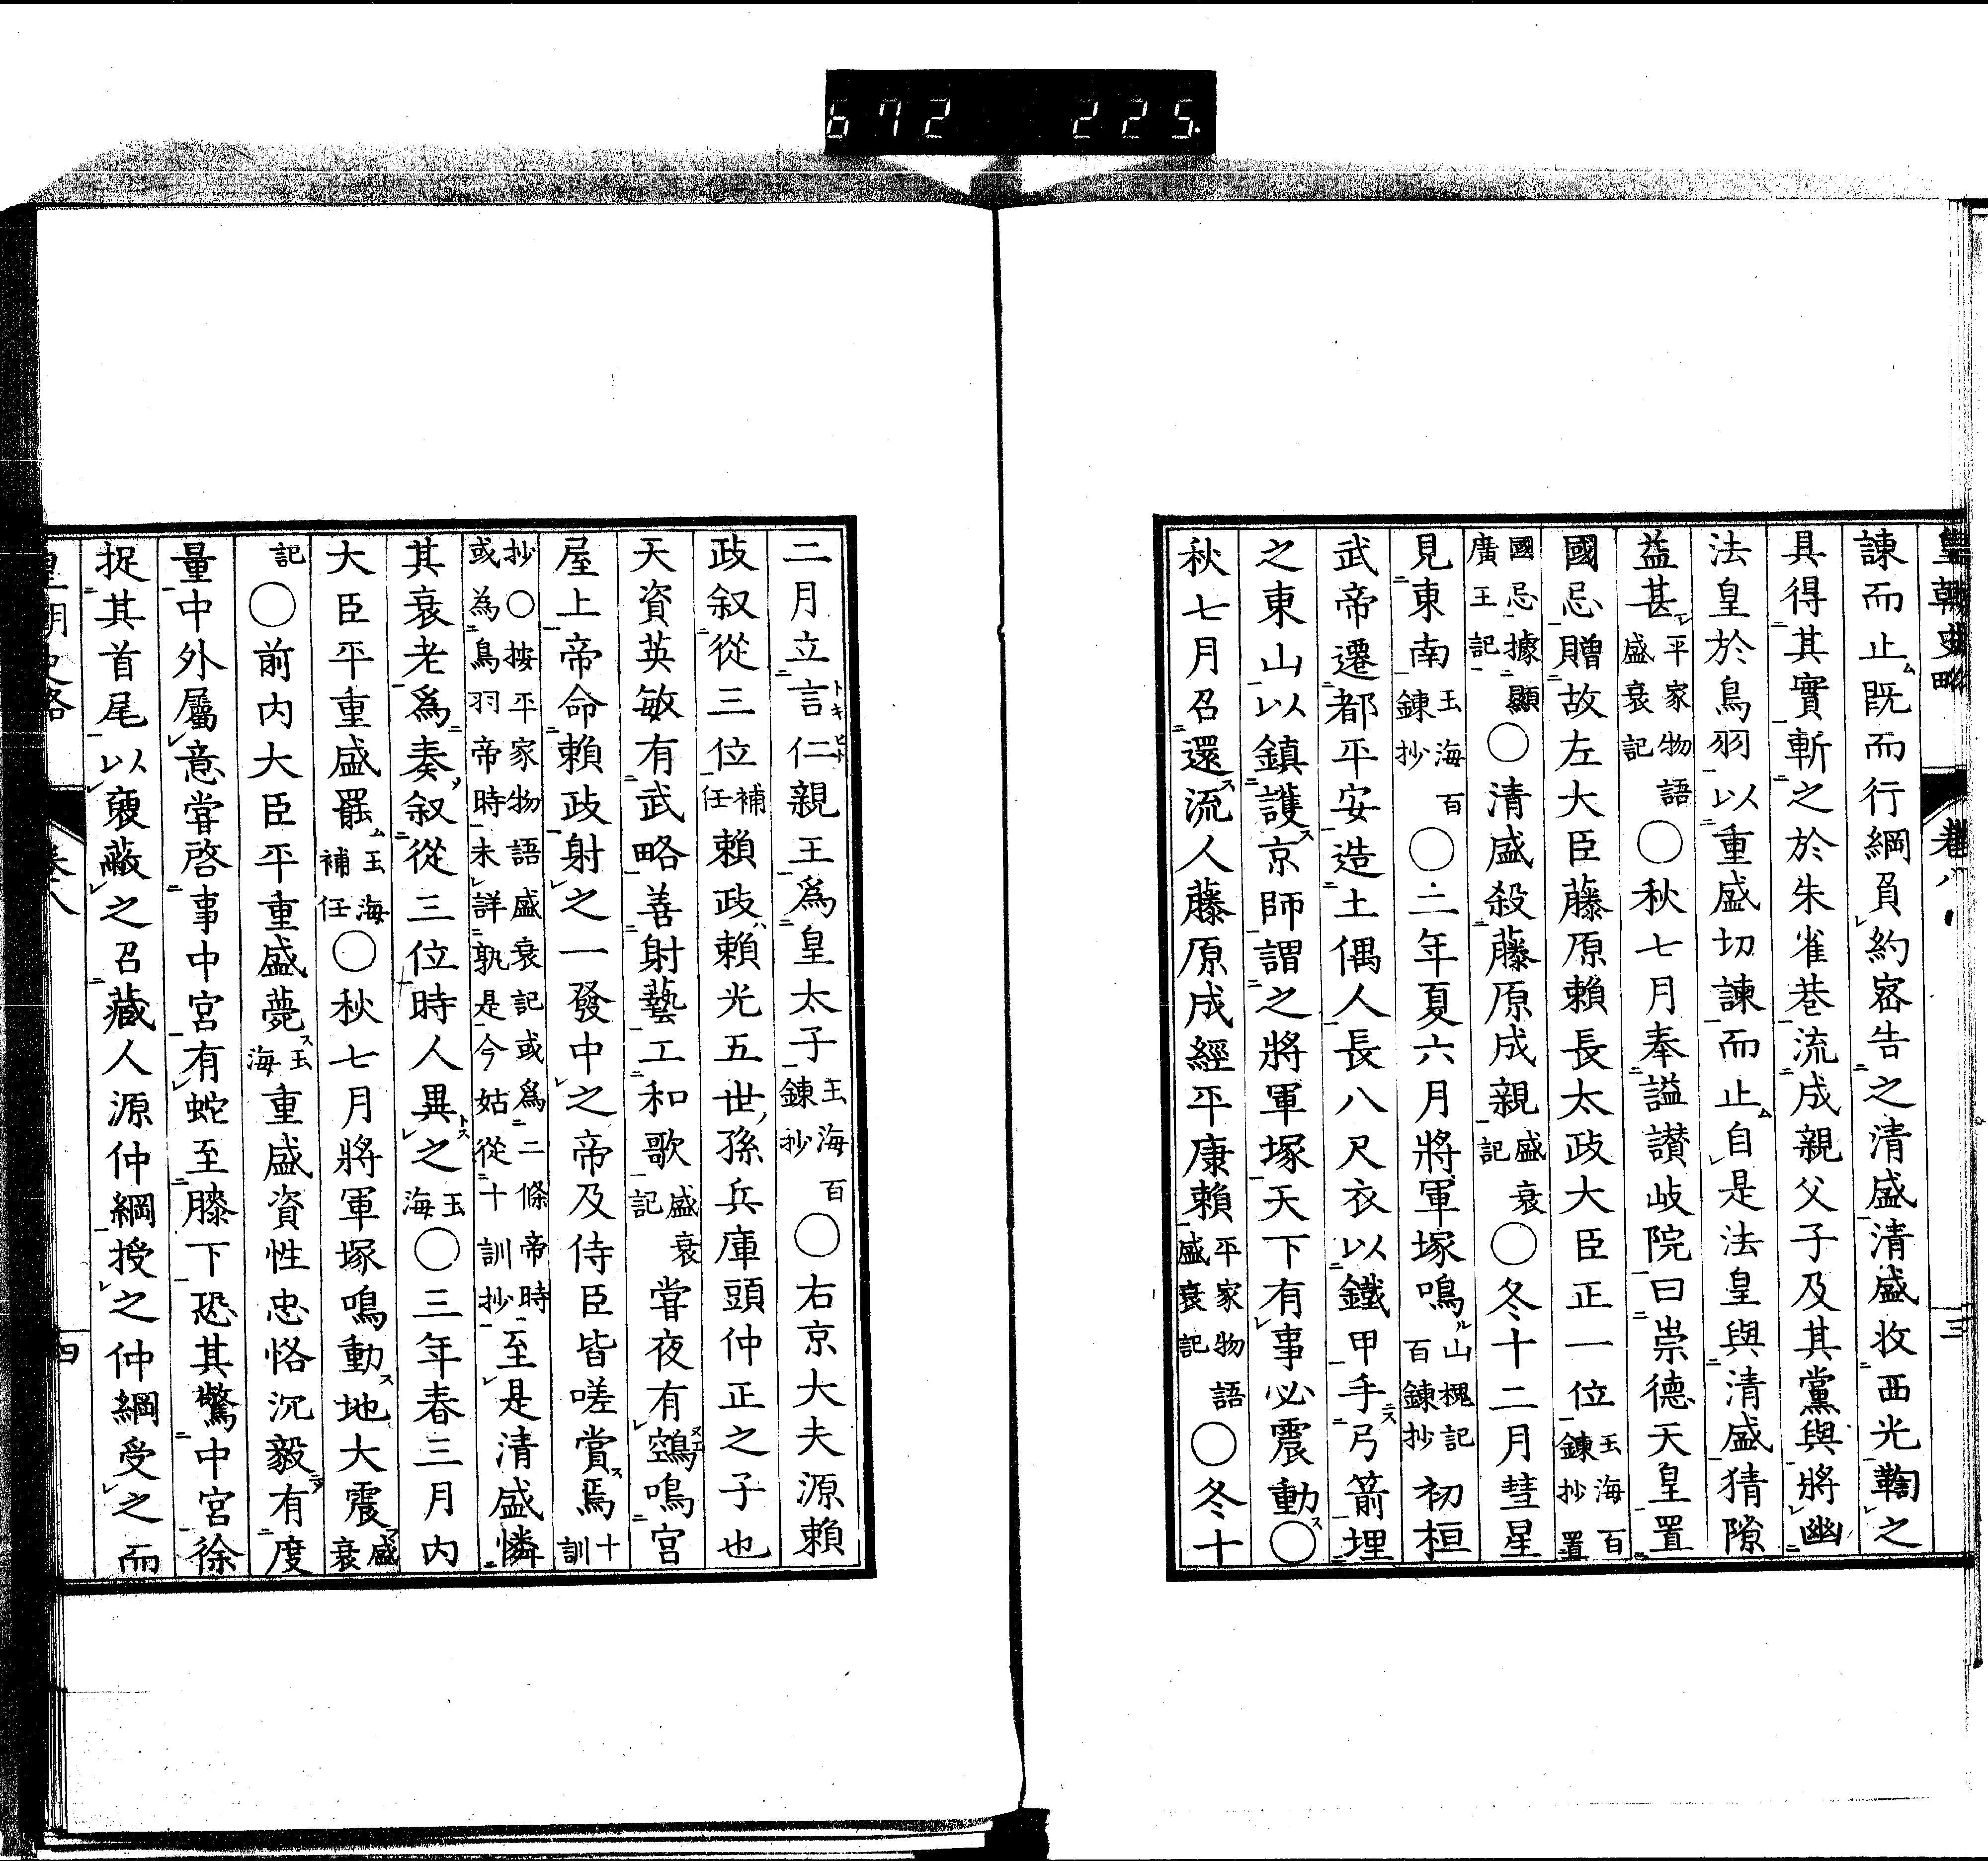 672 225
皇朝史略 卷八 三
諫而止既而行綱負約密告之清盛清盛收西光鞫之
具得其實斬之於朱雀巷流成親父子及其黨與將幽
法皇於鳥羽以重盛切諫而止自是法皇與清盛猜隙
益甚平家物語盛衰記〇秋七月奉謚讃岐院曰崇德天皇置
國忌贈故左大臣藤原賴長太政大臣正一位玉海百鍊抄置
國忌據顯廣王記〇清盛殺藤原成親盛衰記〇冬十二月彗星
見東南玉海百鍊抄〇二年夏六月將軍塚鳴山槐記百鍊抄初桓
武帝遷都平安造土偶人長八尺衣以鐵甲手弓箭埋
之東山以鎮護京師謂之將軍塚天下有事必震動〇
秋七月召還流人藤原成經平康賴平家物語盛衰記〇冬十
二月立言仁親王爲皇太子玉海百鍊抄〇右京大夫源賴
政叙從三位補任賴政賴光五世孫兵庫頭仲正之子也
天資英敏有武略善射藝工和歌盛衰記嘗夜有鵼鳴宮
屋上帝命賴政射之一發中之帝及侍臣皆嗟賞焉十訓
抄〇按平家物語盛衰記或爲二條帝時或為鳥羽帝時未詳孰是今姑從十訓抄至是清盛憐
其衰老爲奏叙從三位時人異之玉海〇三年春三月內
大臣平重盛罷玉海補任〇秋七月將軍塚鳴動地大震盛衰
記〇前内大臣平重盛薨玉海重盛資性忠恪沉毅有度
量中外屬意嘗啓事中宮有蛇至膝下恐其驚中宮徐
捉其首尾以褎蔽之召藏人源仲綱授之仲綱受之而
皇朝史略 卷八 四